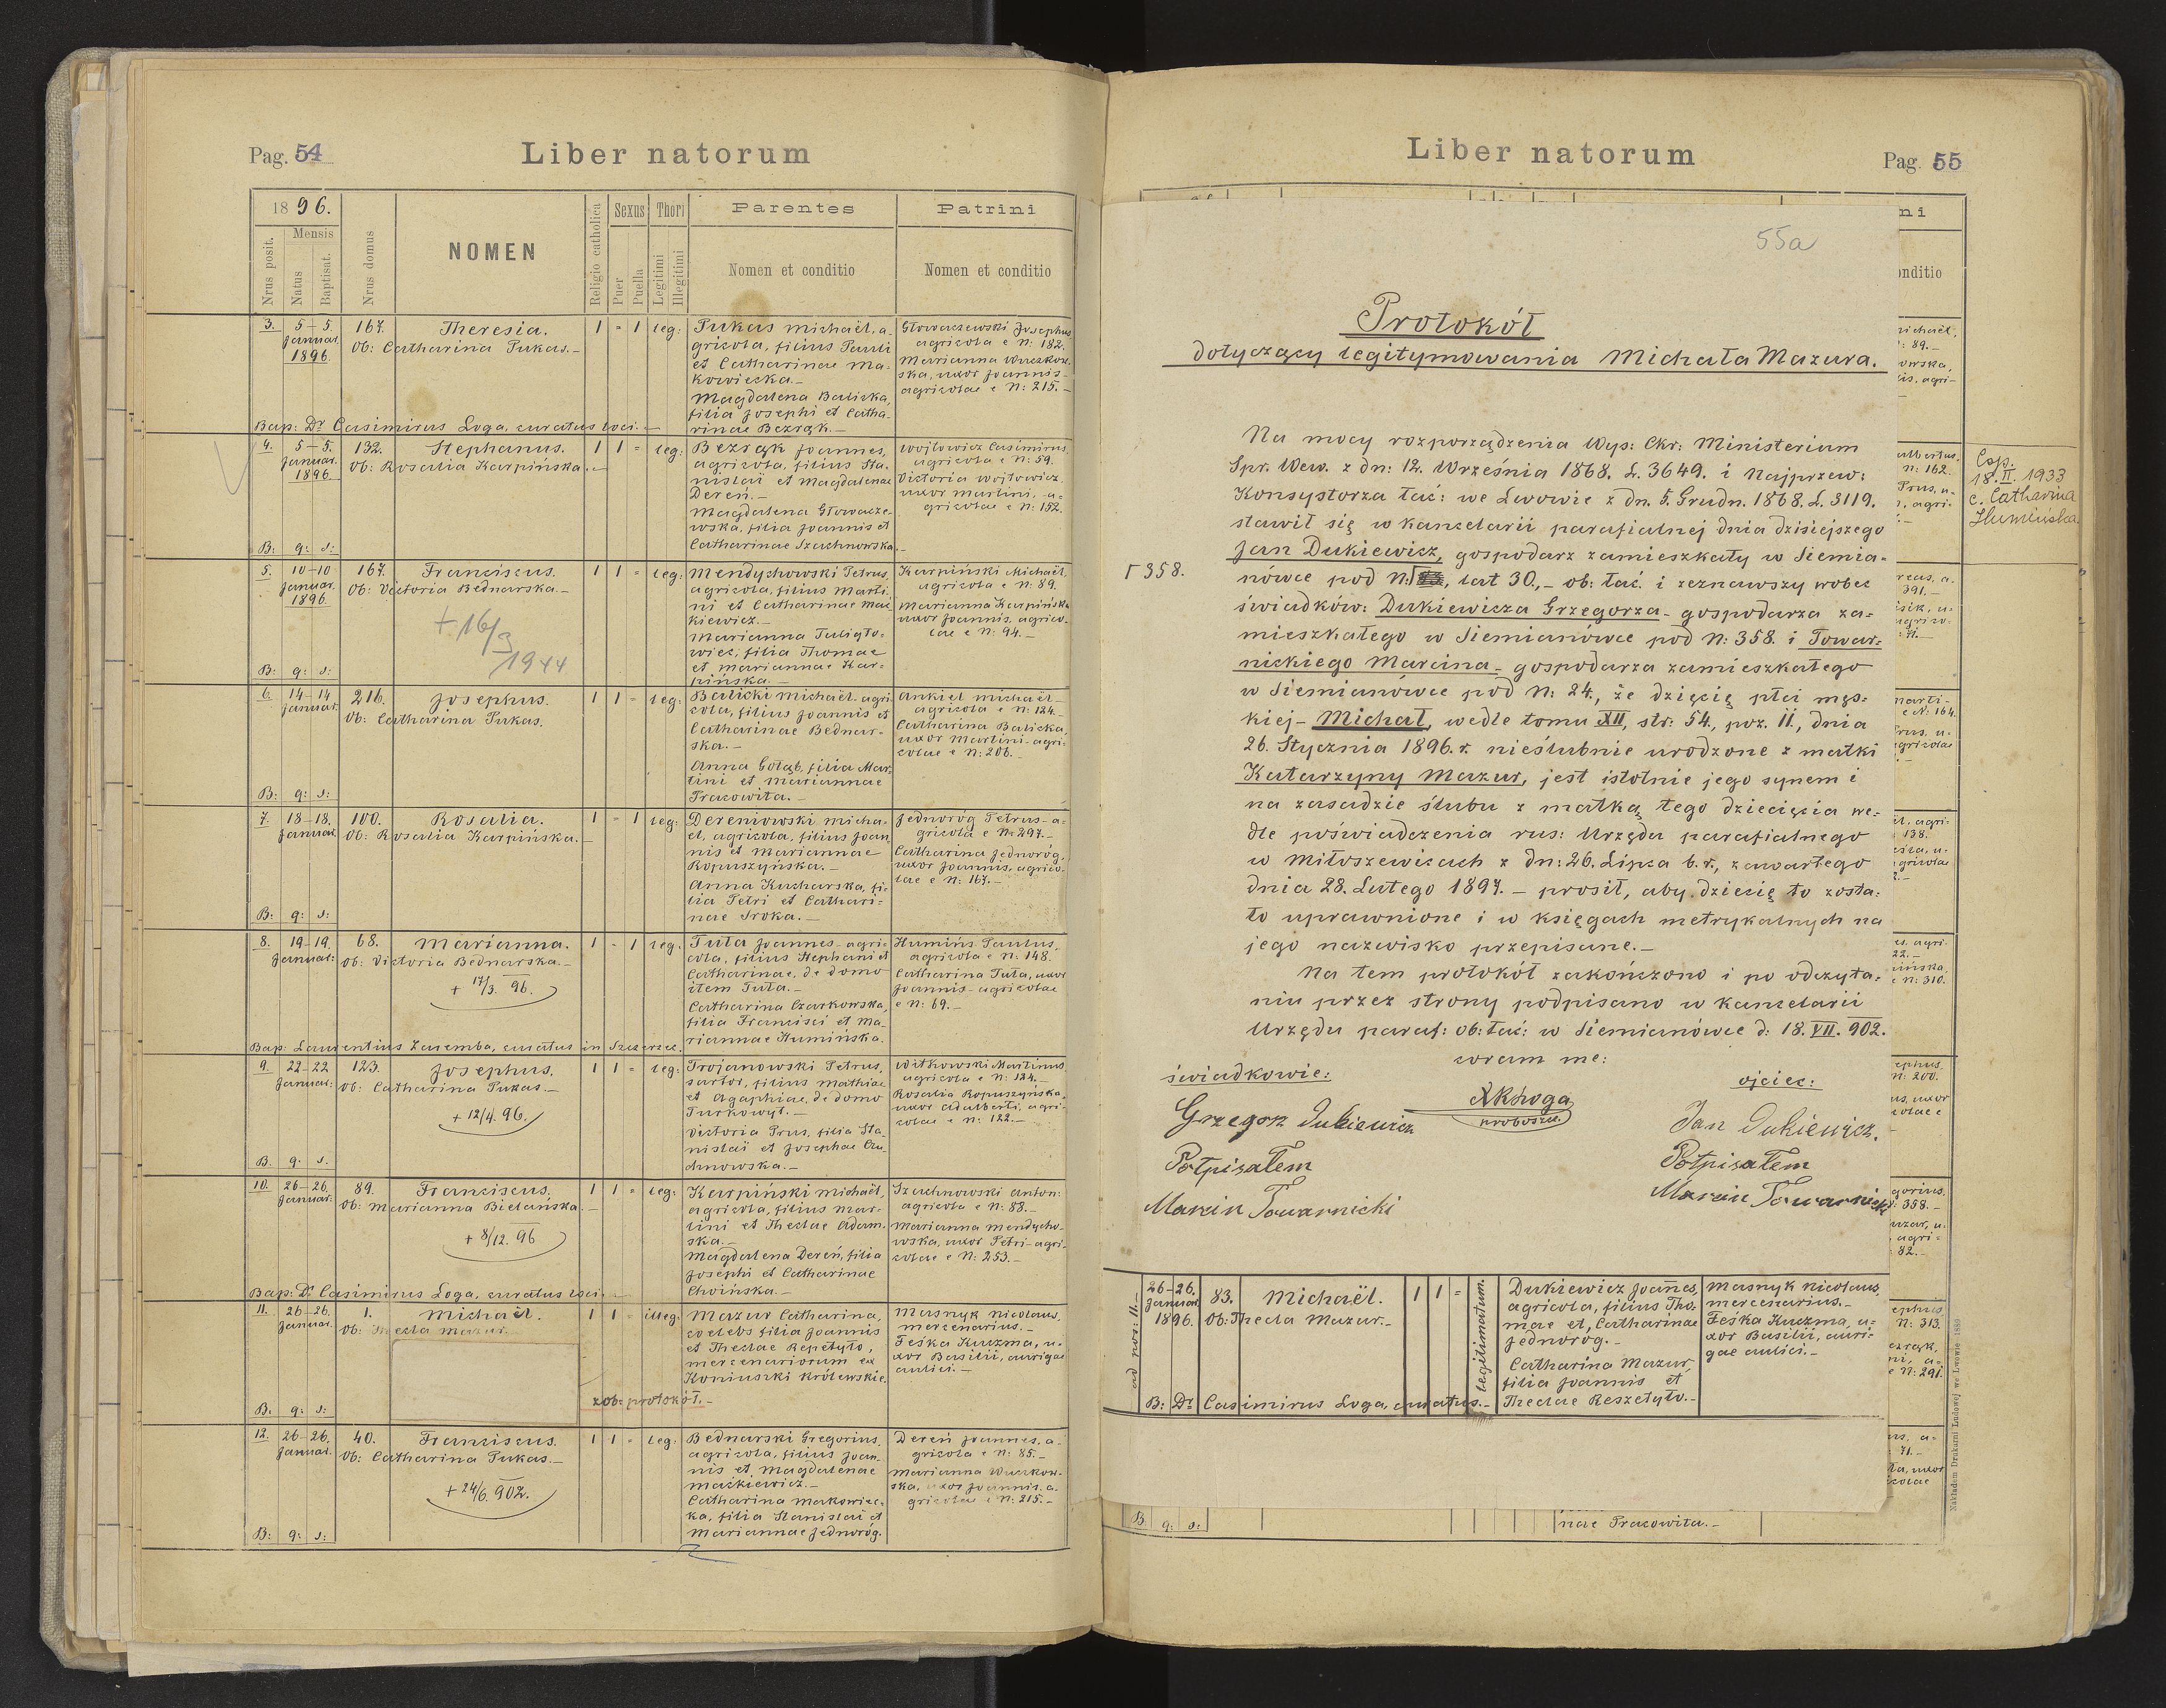 Pag. 54
Liber natorum
1896.
Nrus posit.
Mensis
Natus
Baptisat.
Nrus domus
NOMEN
Religio catholica
Sexus
Puer
Puella
Thori
Legitimi
Illegitimi
Parentes
Nomen et conditio
Patrini
Nomen et conditio
3. 5-5. 167. Theresia. 1 = 1 leg:
Januar. Ob: Catharina Pukas.-
1896.
Pukas Michaël, a-
gricola, filius Pauli
et Catharinae Ma-
kowiecka.-
Magdalena Balicka,
filia Josephi et Catha-
rinae Bezrąk.-
Głowaczewski Josephus
agricola e N: 182.
Marianna Waczkow-
ska, uxor Joannis
agricolae e N: 215.-
Bap: Dr Casimirus Loga, curatus loci.-
4. 5-5. 132. Stephanus. 1 1 = leg:
Januar. Ob: Rosalia Karpińska.-
1896.
Bezrąk Joannes,
agricola, filius Sta-
nislai et Magdalenae
Dereń.-
Magdalena Głowacze-
wska, filia Joannis et
Catharinae Szachnowska.-
Wojtowicz Casimirus,
agricola e N: 59.
Victoria Wojtowicz,
uxor Martini, a-
gricolae e N: 152.
B: q: s:
5. 10-10 167. Franciscus. 1 1 = leg:
Januar. Ob: Victoria Bednarska.-
1896.
+ 16/3 1944
Mendychowski Petrus,
agricola, filius Marti-
ni et Catharinae Mac-
kiewicz.-
Marianna Tuligło-
wiec, filia Thomae
et Mariannae Kar-
pińska.-
Karpiński Michaël,
agricola e N: 89.
Marianna Karpińska
uxor Joannis, agrico-
lae e N: 94.-
B: q: s:
6. 14-14 216. Josephus. 1 1 = leg:
Januar. Ob: Catharina Pukas.
Balicki Michaël agri-
cola, filius Joannis et
Catharinae Bednar-
ska.-
Anna Gołąb, filia Mar-
tini et Mariannae
Pracowita.-
Ankiel Michaël
agricola e N: 124.
Catharina Balicka,
uxor Martini-agri-
colae e N: 206.
B: q: s:
7. 18-18. 100. Rosalia. 1 - 1 leg:
Januar. Ob: Rosalia Karpińska.-
Dereniowski Micha-
el, agricola, filius Joan-
nis et Mariannae
Kopuszyńska.-
Anna Kucharska, fi-
lia Petri et Cathari-
nae Sroka.-
Jednoróg Petrus-a-
gricola e N: 297.-
Catharina Jednoróg,
uxor Joannis, agrico-
lae e N: 167.-
B: q: s:
8. 19-19. 68. Marianna. 1 - 1 leg:
Januar: Ob: Victoria Bednarska.-
+ 17/3. 96.
Tuta Joannes-agri-
cola, filius Stephani et
Catharinae, de domo
item Tuta.-
Catharina Czarkowska,
filia Francisci et Ma-
riannae Humińska.
Humińs. Paulus,
agricola e N: 148.
Catharina Tuta, uxor
Joannis-agricolae
e N: 69.-
Bap: Laurentius Zaremba, curatus in Szczerzec.
9. 22-22 123. Josephus. 1 1 = leg:
Januar: Ob: Catharina Pukas.-
+ 12/4. 96.
Trojanowski Petrus,
sartor, filius Mathiae
et Agaphiae, de domo
Turkowyt.-
Victoria Prus, filia Sta-
nislai et Josephae Cza-
chnowska.-
Witkowski Martinus
agricola e N: 134.-
Rosalia Kopuszyńska,
uxor Adalberti, agri-
colae e N: 122.-
B. q. s.
10. 26-26. 89. Franciscus. 1 1 = leg:
Januar: Ob: Marianna Bielańska.-
+ 8/12. 96
Karpiński Michaël,
agricola, filius Mar-
tini et Theclae Adam-
ska.-
Magdalena Dereń, filia
Josephi et Catharinae
Choińska.-
Szachnowski Anton:
agricola e N: 88.-
Marianna Mendycho-
wska, uxor Petri-agri-
colae e N: 253.-
Bap: Dr Casimirus Loga, curatus loci.-
11. 26-26. 1. Michaël. 1 1 = illeg:
Januar. Ob: Thecla Mazur.
Mazur Catharina,
coelebs filia Joannis
et Theclae Repetyło,
mercenariorum ex
Koniuszki Królewskie.
Masnyk Nicolaus,
mercenarius.-
Feśka Kuczma, u-
xor Basilii, aurigae
aulici.-
zob: protokół.-
B. q: s:
12. 26-26. 40. Franciscus. 1 1 = leg:
Januar. Ob: Catharina Pukas.-
+ 24/6. 902.
Bednarski Gregorius,
agricola, filius Joan-
nis et Magdalenae
Maćkiewicz.-
Catharina Makowiec-
ka, filia Stanislai et
Mariannae Jednoróg.
Dereń Joannes, a-
gricola e N: 85.-
Marianna Waczkow-
ska, uxor Joannis. a-
gricolae e N: 215.-
B: q: s:
Liber natorum
Pag. 55
55a
Protokół
dotyczący legitymowania Michała Mazura.
Na mocy rozporządzenia Wys: Ckr: Ministerium
Spr. Wew. z dn: 12. Września 1868. L. 3649. i Najprzew:
Konsystorza łać: we Lwowie z dn. 5. Grudn. 1868. L. 3119.
stawił się w kancelarii parafialnej dnia dzisiejszego
Jan Dukiewicz, gospodarz zamieszkały w Siemia-
Γ 358.
nówce pod N:Γ, lat 30,- ob: łać. i zeznawszy wobec
świadków: Dukiewicza Grzegorza- gospodarza za-
mieszkałego w Siemianówce pod N: 358. i Towar-
nickiego Marcina- gospodarza zamieszkałego
w Siemianówce pod N: 24., że dziecię płci męs-
kiej- Michał, wedle tomu XII, str: 54., poz. 11., dnia
26. Stycznia 1896.r. nieślubnie urodzone z matki
Katarzyny Mazur, jest istotnie jego synem i
na zasadzie ślubu z matką tego dziecięcia we-
dle poświadczenia rus: Urzędu parafialnego
w Miłoszewicach z dn: 26. Lipca b.r., zawartego
dnia 28. Lutego 1897.- prosił, aby dziecię to zosta-
ło uprawnione i w księgach metrykalnych na
jego nazwisko przepisane.-
Na tem protokół zakończono i po odczyta-
niu przez strony podpisano w kancelarii
Urzędu paraf: ob: łać: w Siemianówce d: 18. VII. 902.
coram me:
świadkowie:
ojciec:
XKLoga
proboszcz.
Grzegorz Dukiewicz
Jan Dukiewicz.
Potpisałem
Potpisałem
Marcin Towarnicki
Marcin Towarnicki
ad nor: 11.-
26-26. 83. Michaël. 1 1 = legitimatum.
Januar Ob: Thecla Mazur.-
1896.
Dukiewicz Joanes,
agricola, filius Tho-
mae et, Catharinae
Jednoróg.-
Catharina Mazur,
filia Joannis et
Theclae Reszetyło.-
Masnyk Nicolaus,
mercenarius.-
Feśka Kuczma, u-
xor Basilii, auri-
gae aulici.-
B: Dr Casimirus Loga, curatus.-
B q: s:
nae Pracowita.-
ni
onditio
Cop.
18. II. 1933
c. Catharina
Humińska.
Nakładem Drukarni Ludowej we Lwowie 1889